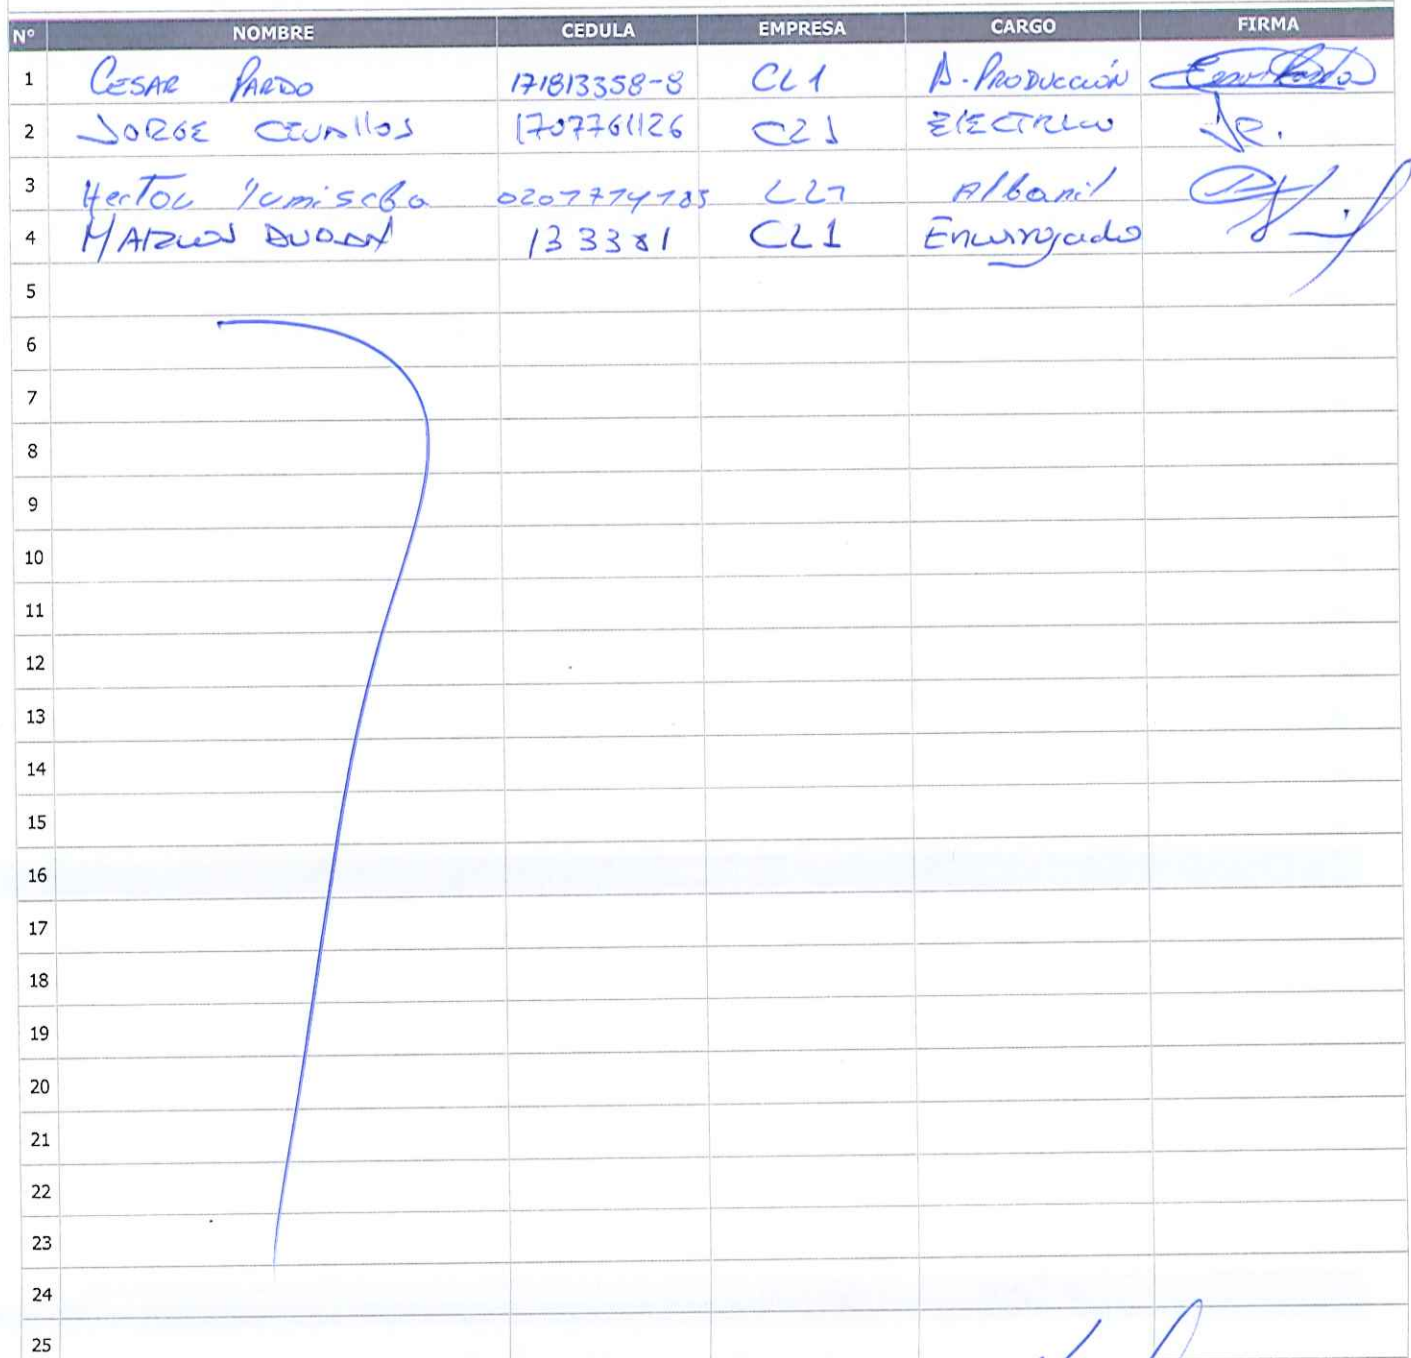 N° NOMBRE CEDULA EMPRESA CARGO FIRMA
1 CESAR PARDO 171813358-8 CL1 A. PRODUCCIÓN
2 JORGE CEVAllOS 1707761126 CL1 ElECTRICO
3 Hector CL1 Albanil
4 DURAN 133381 CL1 Encargado
5
6
7
8
9
10
11
12
13
14
15
16
17
18
19
20
21
22
23
24
25